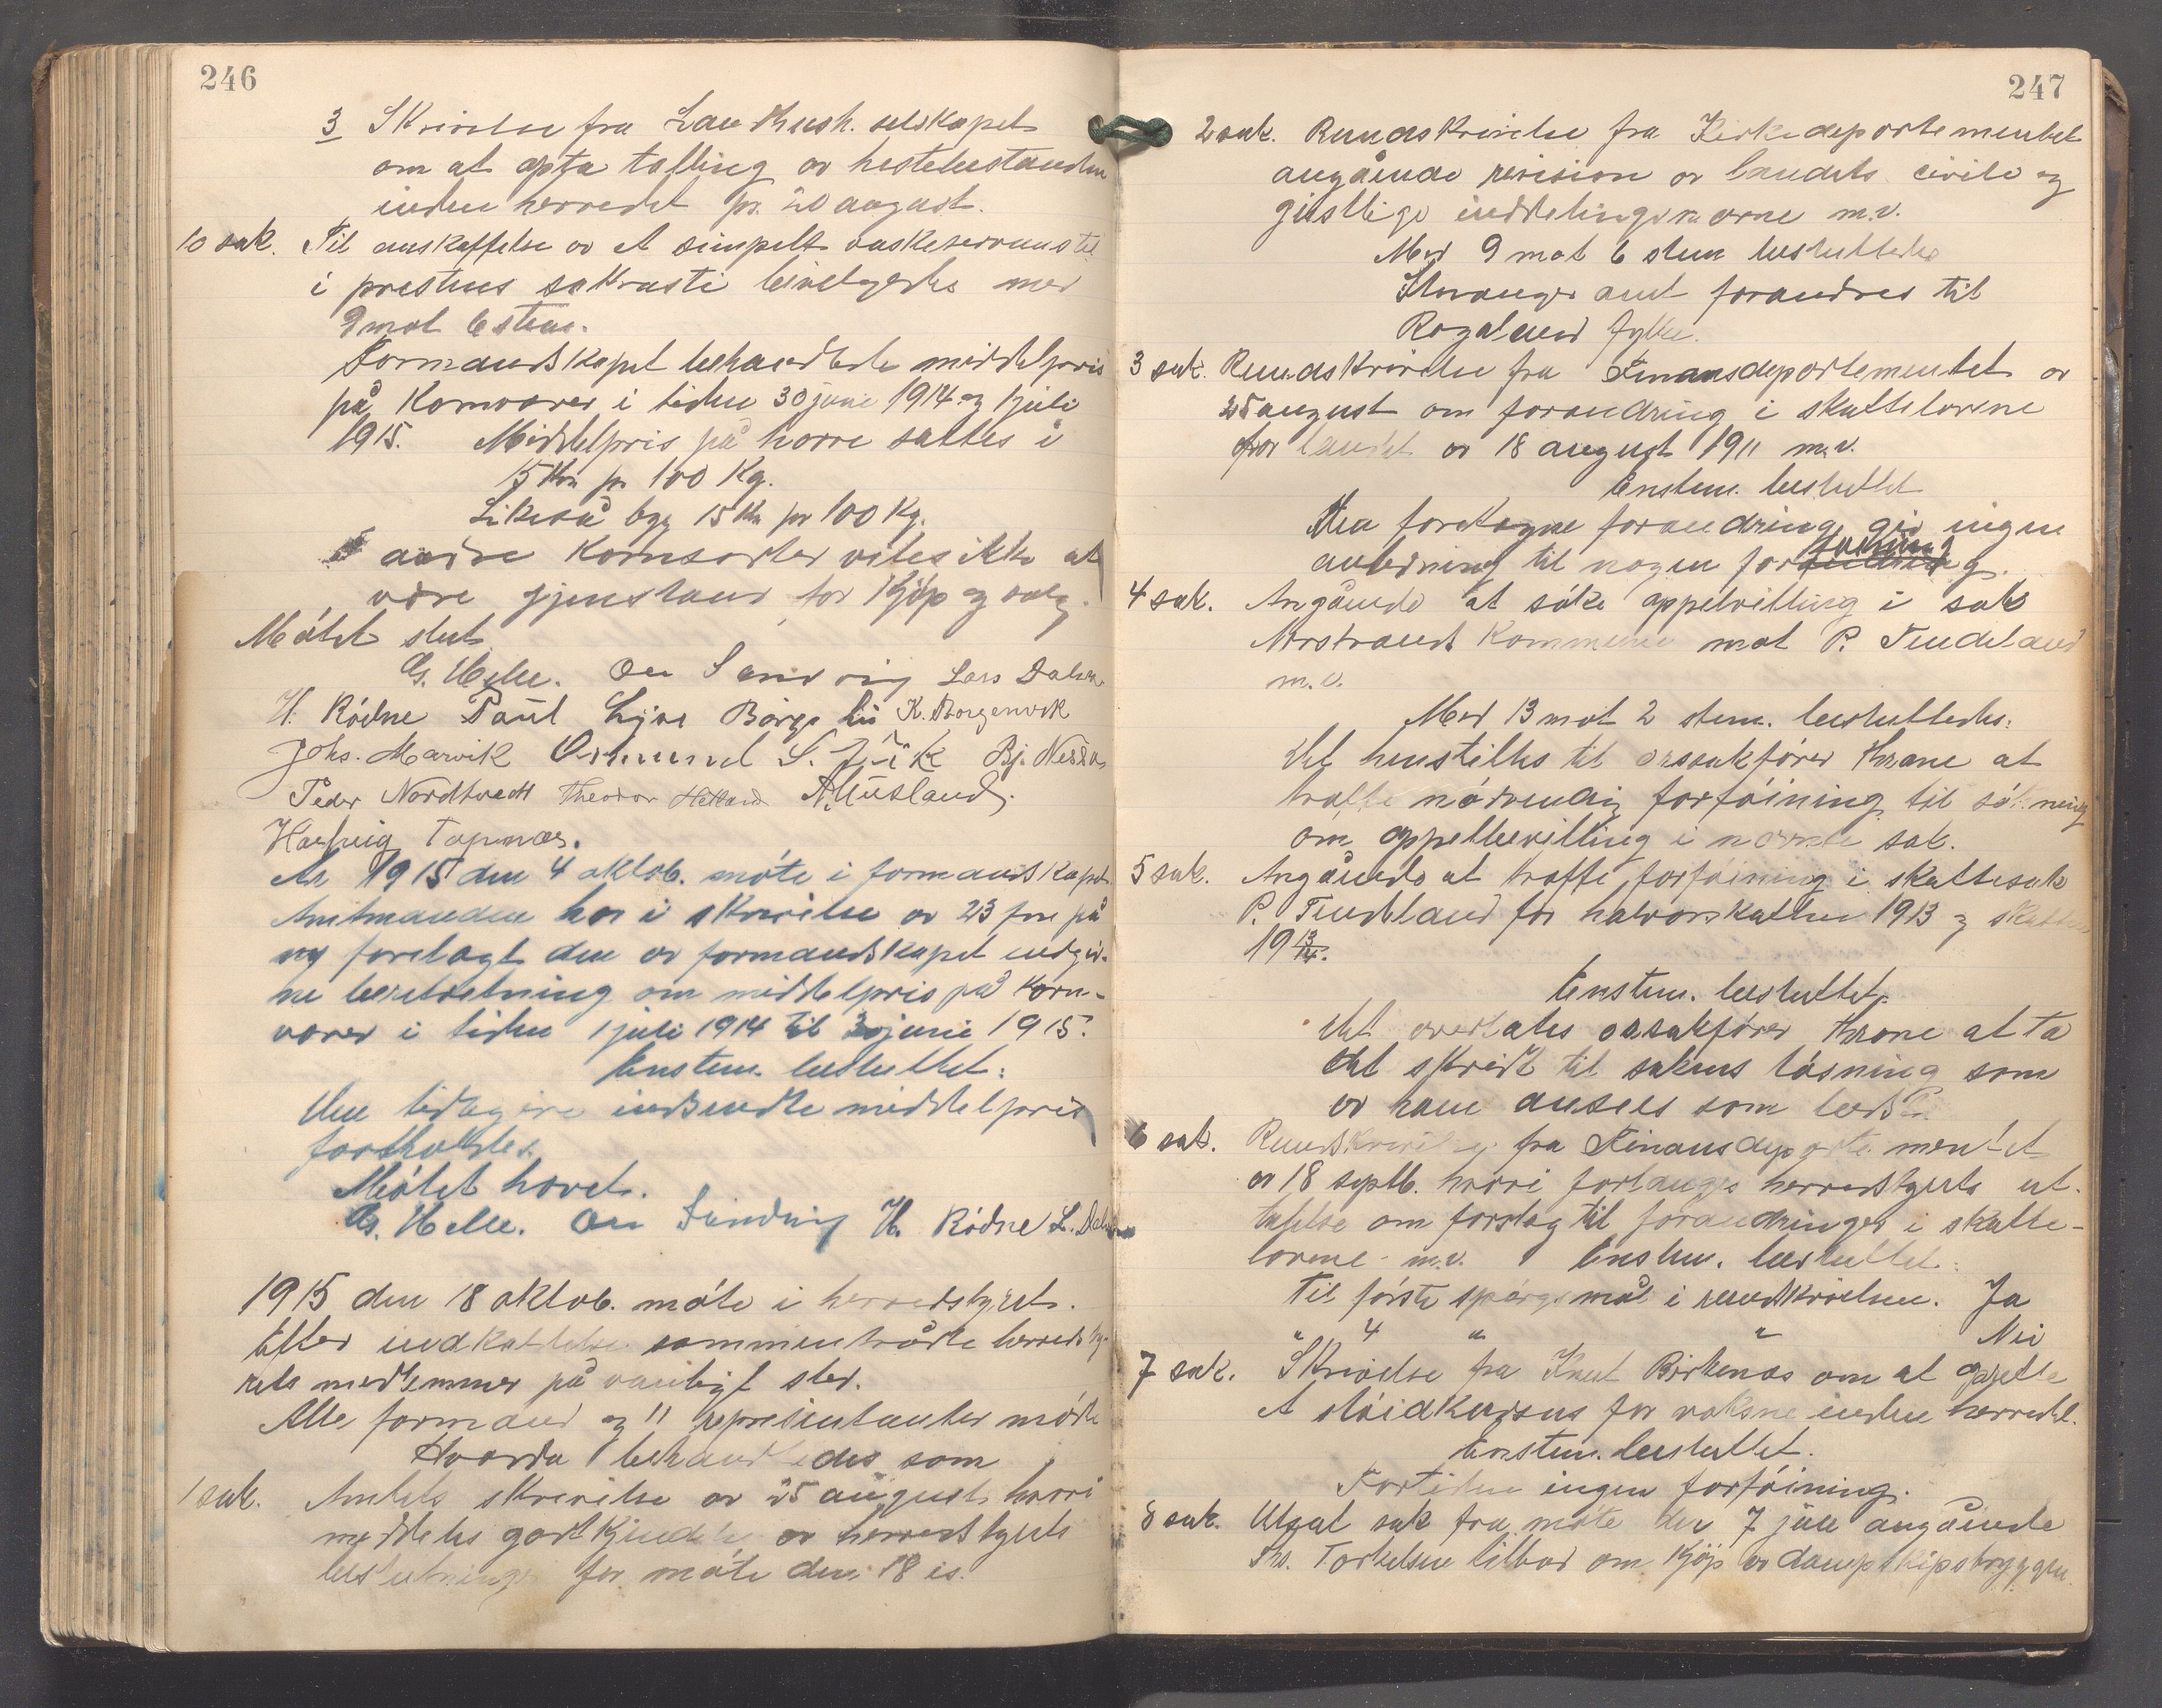 246
3 Skrivelse fra Landhush. selskapet
om at opta tælling av hestebestanden
inden herredet pr. 20 august.
10 sak. Til anskaffelse av et simpelt vaskeservans til
i prestens sakristi bevilgedes med
9 mot 6 stem.
Formandskapet behandlede middelpris
på kornvarer i tiden 30 june 1914 og 1 juli
1915. Middelpris på havre sattes i
15 Kr. pr 100 Kg.
Likeså byg 15 Kr pr 100 Kg.
andre kornsorter vites ikke at
være gjenstand for kjöp og salg.
Mötet slut
G. Helle. Ou Sandvig Lars Dalen
H. Rödne Paul Ljæn Börge Lie K. Borgenvik
Johs. Marvik Osmund S. Vik Bj. Nessa
Peder Nordtvedt Theodor Hetland A. Ausland
Hartvig Topnæs.
År 1915 den 4 oktob. möte i formandskapet
Amtmanden har i skrivelse av 23 fm på
ny forelagt den av formandskapet indgiv-
ne beretning om middelpris på korn-
varer i tiden 1 juli 1914 til 30 juni 1915.
Enstem. besluttet:
Den tidligere indsendte middelpris
fastholdes.
Mötet hævet.
G. Helle. Ou Sandvig H. Rödne L. Dalen
1915 den 18 oktob. möte i herredstyret.
Efter indkaldelse sammentrådte herredsty-
rets medlemmer på vanligt sted.
Alle formænd og 11 representanter mödte
Hvorda behandledes som
1 sak. Amtets skrivelse av 25 august hvori
meddeles godtkjendelse av herredstyrets
beslutninger for möte den 18 is.
247
2 sak. Rundskrivelse fra Kirkedepartementet
angående revision av landets civile og
gistlige inddelingsnavne m.v.
Med 9 mot 6 stem besluttedes
Stavanger amt forandres til
Rogaland fylke.
3 sak. Rundskrivelse fra Finansdepartementet av
25 august om forandring i skattelovene
for landet av 18 august 1911 m.v.
Enstem. besluttet
Den foretagne forandring giv ingen
anledning til nogen forföining.
4 sak. Angående at söke appelvilling i sak
Nerstrand Kommune mot P. Tindeland
m.v.
Med 13 mot 2 stem. besluttedes:
Det henstilles til orsakförer Krane at
træffe nödvendig forföining til sökning
om appelbevilling i nævnte sak.
5 sak. Angående at træffe forföining i skattesak
P. Tindeland for halvårskatten 1913 og skatten
19 13/14.
Enstem. besluttet:
Det overlates orsakförer Krane at ta
det skridt til sakens lösning som
av ham ansees som bedst.
6 sak. Rundskrivelse fra Finansdepartementet
av 18 septb. hvori forlanges herredstyrets ut-
talelse om forslag til forandringer i skatte-
lovene m.v. Enstem. besluttet:
Til förste spörgsmål i rundskrivelsen. Ja
" 4 " " Nei
7 sak. Skrivelse fra Knut Birkenæs om at oprette
et slöidkursus for voksne inden herredet.
Enstem. besluttet.
Fortiden ingen forföining.
8 sak. Utsat sak fra möte den 7 juli angående
Ths. Torkelsen tilbud om kjöp av dampskipsbryggen